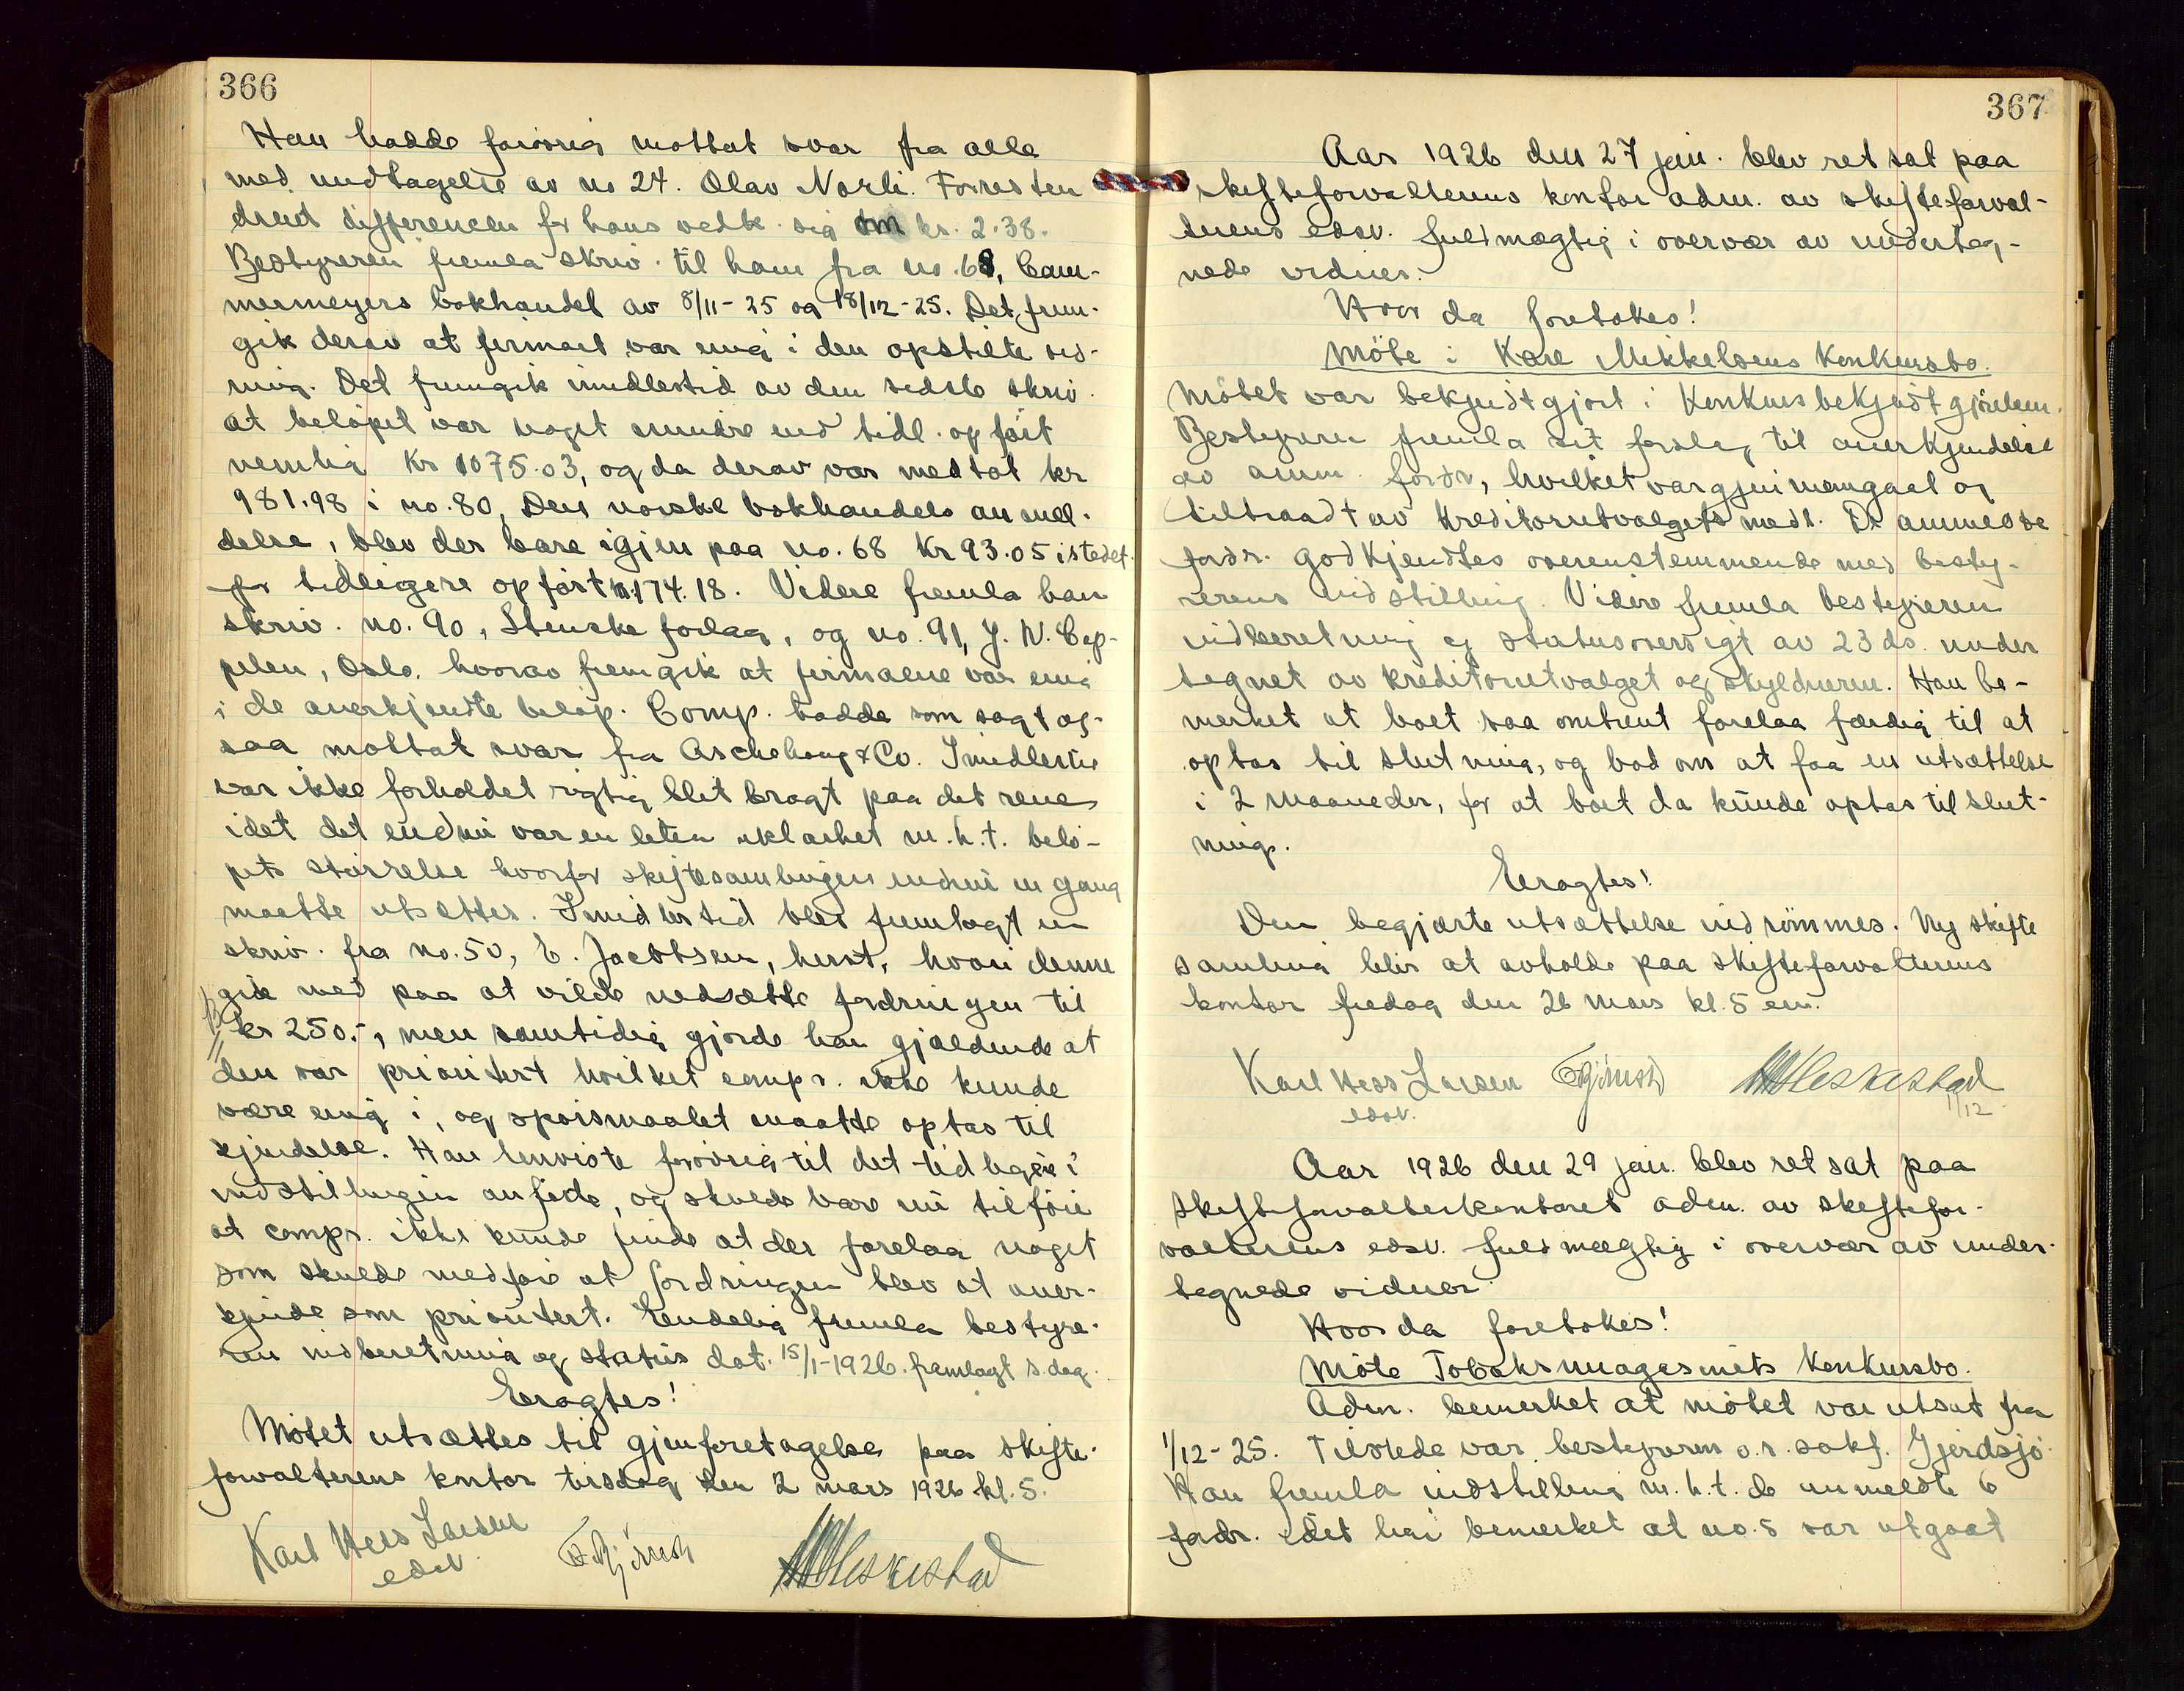 366
Han hadde forövrig mottat svar fra alle
med undtagelse av no 24. Olav Norli. Forresten
dreiet differencen for hans vedk. sig om kr. 2.38.
Bestyreren fremla skriv. til ham fra no. 68, Cam-
mermeyers bokhandel av 8/11-25 og 18/12-25. Det frem-
gik derav at firmaet var enig i den opstilte
ning. Det fremgik imidlertid av den sidste skriv.
at belöpet var noget mindre end tidl. opfört
nemlig Kr 1075.03, og da derav var medtat kr
981.98 i no. 80, Den norske bokhandels anmel-
delse, blev der bare igjen paa no. 68 Kr 93.05 istedet
for tidligere opfört kr. 174.18. Videre fremla han
skriv. no. 90, Stenske forlag, og no. 91, J. W. Cap-
pelen, Oslo. hvorav fremgik at firmaene var enig
i de anerkjendte belöp. Comp. hadde som sagt og-
saa mottat svar fra Aschehoug & Co. Imidlertid
var ikke forholdet rigtig blit bragt paa det rene
idet det endnu var en liten uklarhet m.h.t. belö-
pets störrelse hvorfor skiftesamlingen endnu en gang
maatte utsættes. Imidlertid blev fremlagt en
skriv. fra no. 50, E. Jacobsen, herst, hvori denne
gik med paa at vilde nedsætte fordringen til
kr 250.-, men samtidig gjorde han gjældende at
den var prioritert hvilket comp. ikke kunde
være enig i, og spörsmaalet maatte optas til
kjendelse. Han henviste forövrig til det tidligere i
indstillingen anförte, og skulde bare nu tilföie
at comp. ikke kunde finde at der forelaa noget
som skulde medföre at fordringen blev at aner-
kjende som prioritert. Endelig fremla bestyre-
ren indberetning og status dat. 15/1-1926. fremlagt s. dag.
Eragtes!
Mötet utsættes til gjenforetagelse paa skifte-
forvalterens kontor tirsdag den 2 mars 1926 kl. 5.
Karl Hess Larsen
edsv.
367
Aar 1926 den 27 jan. blev ret sat paa
skifteforvalterens kontor adm. av skifteforval-
terens edsv. fuldmægtig i overvær av underteg-
nede vidner:
Hvor da foretokes!
Möte i Kåre Mikkelsens Konkursbo.
Mötet var bekjendtgjort i Konkursbekjendtgjörelsen.
Bestyreren fremla sit forslag til anerkjendelse
av anm. fordr, hvilket var gjennemgaat og
tiltraadt av kreditorutvalgets medl. De anmeldte
fordr. godkjendtes overenstemmende med besty-
rerens indstilling. Videre fremla bestyreren
indberetning og statusoversigt av 23 ds. under
tegnet av kreditorutvalget og skyldneren. Han be-
merket at boet saa omtrent forelaa færdig til at
optas til slutning, og bad om at faa en utsættelse
i 2 maaneder, for at boet da kunde optas til slut-
ning.
Eragtes!
Den begjærte utsættelse indrömmes. Ny skifte
samling blir at avholde paa skifteforvalterens
kontor fredag den 26 mars kl. 5 em.
Karl Hess Larsen
edsv.
1/12
Aar 1926 den 29 jan. blev ret sat paa
skifteforvalterkontoret adm. av skiftefor-
valterens edsv. fuldmægtig i overvær av under-
tegnede vidner
Hvor da foretokes!
Möte Tobaksmagasinets Konkursbo.
Adm. bemerket at mötet var utsat fra
1/12-25. Tilstede var bestyreren o.r. sakf. Gjerdsjö.
Han fremla indstilling m.h.t. de anmeldte 6
fordr. idet han bemerket at no. 5 var utgaat